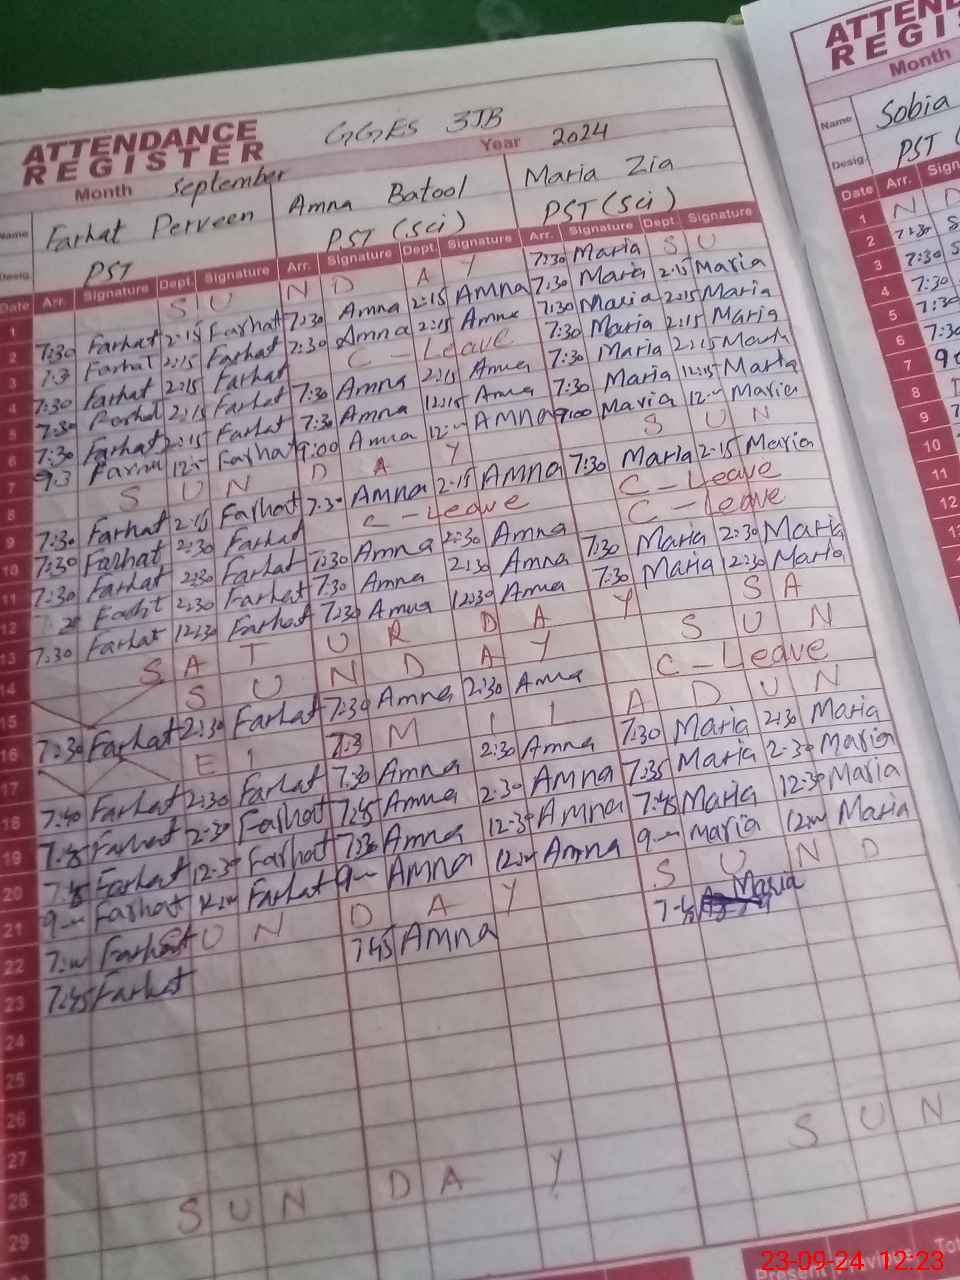 ATTENDANCE REGISTER GGES 3JB
Month September Year 2024
Name Farhat Perveen Amna Batool Maria Zia
Desig. PST PST (Sci) PST (Sci)
Date Arr. Signature Dept. Signature Arr. Signature Dept. Signature Arr. Signature Dept. Signature
1 S U N D A Y S U
2 7:30 Farhat 2:15 Farhat 7:30 Amna 2:15 AMNA 7:30 Maria 2:15 Maria
3 Farhat 2:15 Farhat 7:30 Amna 2:15 Amna 7:30 Maria 2:15 Maria
4 7:30 Farhat 2:15 Farhat C - Leave 7:30 Maria 2:15 Maria
5 7:30 Farhat 2:15 Farhat 7:30 Amna 2:15 Amna 7:30 Maria 2:15 Maria
6 7:30 Farhat Farhat 7:30 Amna 12:15 Amna 7:30 Maria 12:15 Maria
7 Farhat 9:00 Amna AMNA 9:00 Maria Maria
8 S U N D A Y S U N
9 7:30 Farhat 2:15 Farhat 7:30 Amna 2:15 AMNA 7:30 Maria 2:15 Maria
10 7:30 Farhat 2:30 Farhat C - Leave C - Leave
11 7:30 Farhat 2:30 Farhat 7:30 Amna 2:30 Amna C - Leave
12 2:30 Farhat 7:30 Amna 2:30 Amna 7:30 Maria 2:30 Maria
13 7:30 Farhat 12:30 Farhat 7:30 Amna 12:30 Amna 7:30 Maria 12:30 Maria
14 S A T U R D A Y S A
15 S U N D A Y S U N
16 7:30 Farhat 2:30 Farhat 7:30 Amna 2:30 Amna C - Leave
17 E I D M I L A D U N
18 7:40 Farhat 2:30 Farhat 7:30 Amna 2:30 Amna 7:30 Maria 2:30 Maria
19 Farhat 2:30 Farhat 7:45 Amna 2:30 AMNA 7:35 Maria 2:30 Maria
20 Farhat 12:30 Farhat 7:30 Amna 12:30 AMNA 7:45 Maria 12:30 Maria
21 Farhat Farhat AMNA Amna Maria Maria
22 S U N D A Y S U N D
23 7:45 Farhat 7:45 AMNA Maria
24
25
26
27
28
29 S U N D A Y S U N
ATTEN
REGI
Month
Name Sobia
Desig. PST
Date Arr. Sign
1 N D
2 7:30 S
3 7:30 S
4 7:30
5 7:30
6 7:30
7
8
9
10
11
12
Present
23-09-24 12:23